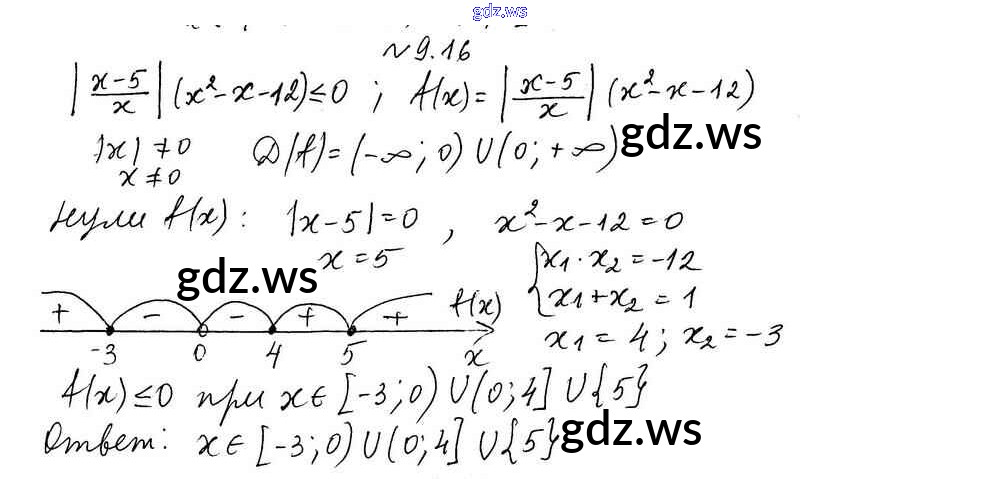 gdz.ws
№9.16
|x-5/x| (x²-x-12)≤0 ; f(x)=|x-5/x| (x²-x-12)
|x|≠0 D(f)=(-∞;0)∪(0;+∞) gdz.ws
x≠0
Нули f(x): |x-5|=0 , x²-x-12=0
x=5 {x₁·x₂=-12
gdz.ws x₁+x₂=1
+ - - + + f(x)
x₁=4; x₂=-3
-3 0 4 5 x
f(x)≤0 при x∈[-3;0)∪(0;4]∪{5}
Ответ: x∈[-3;0)∪(0;4]∪{5} gdz.ws